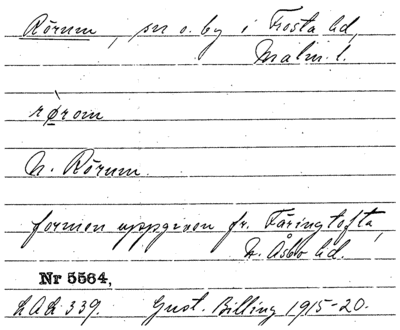 Rörum, sn o. by i Frosta hd,
Malm. l.
rø̀rom
N. Rörum.
formen uppgiven fr. Färingtofta,
N. Åsbo hd.
Nr 5564,
LAL 339. Gust. Billing 1915-20.